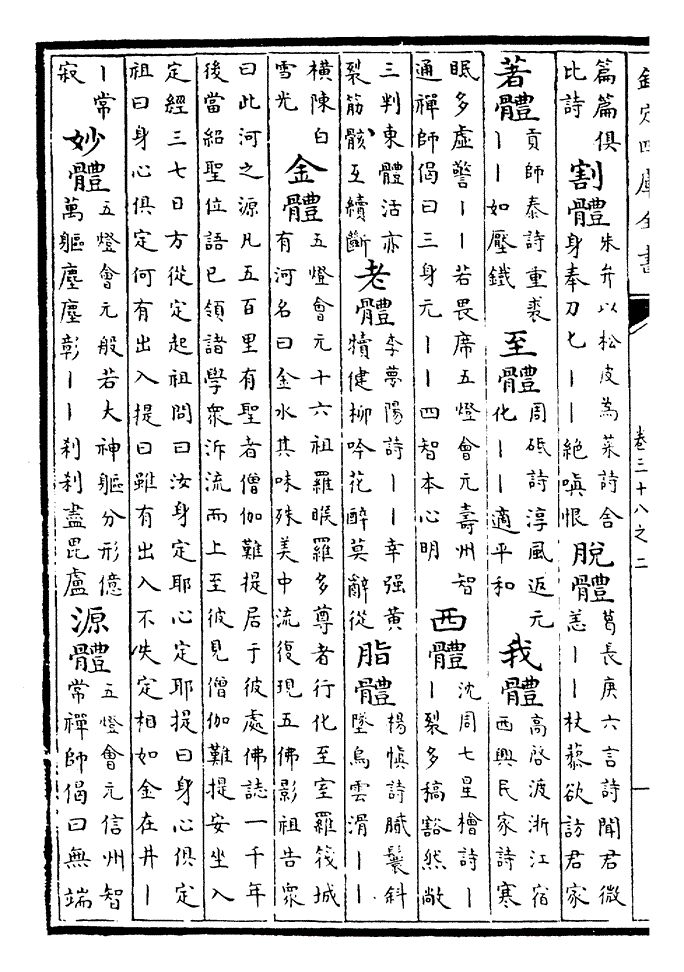 欽定四庫全書
卷三十八之二
篇篇俱
比詩
割體
朱弁以松皮為菜詩舍
身奉刀匕丨丨絶嗔恨
脫體
葛長庚六言詩聞君微
恙丨丨杖藜欲訪君家
著體
貢師泰詩重裘
丨丨如壓鐵
至體
周砥詩淳風返元
化丨丨適平和
我體
高啓渡浙江宿
西興民家詩寒
眠多虛警丨丨若畏席五燈會元壽州智
通禪師偈曰三身元丨丨四智本心明
西體
沈周七星檜詩丨
丨裂多稿豁然敞
三判東體活亦
裂筋骸互續斷
老體
李夢陽詩丨丨幸强黄
犢健柳吟花醉莫辭從
脂體
楊慎詩膩鬟斜
墜烏雲滑丨丨
横陳白
雪光
金體
五燈會元十六祖羅睺羅多尊者行化至室羅筏城
有河名曰金水其味殊美中流復現五佛影祖告衆
曰此河之源凡五百里有聖者僧伽難提居于彼處佛誌一千年
後當紹聖位語已領諸學衆泝流而上至彼見僧伽難提安坐入
定經三七日方從定起祖問曰汝身定耶心定耶提曰身心俱定
祖曰身心俱定何有出入提曰雖有出入不失定相如金在井丨
丨常
寂
妙體
五燈會元般若大神軀分形億
萬軀塵塵彰丨丨刹刹盡毘盧
源體
五燈會元信州智
常禪師偈曰無端